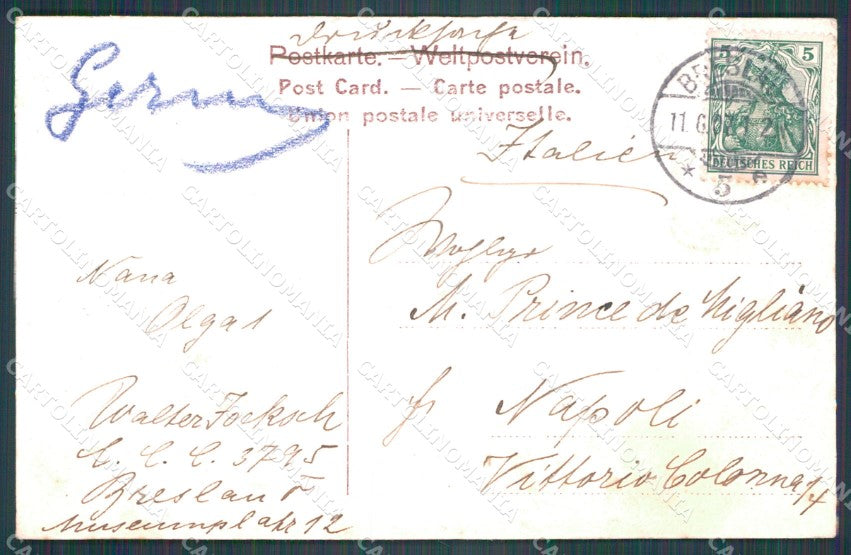 Drucksache
Postkarte. — Weltpostverein.
Post Card. — Carte postale.
Union postale universelle.
Germ
Italien
5
DEUTSCHES REICH
BRESLAU
11.6.
* 5 e
M. Prince de Migliano
Napoli
Vittorio Colonna
Nana
Olga
Walter Jocksch
L. C. C. 3795
Breslau
Museumplatz 12
CARTOLINOMANIA